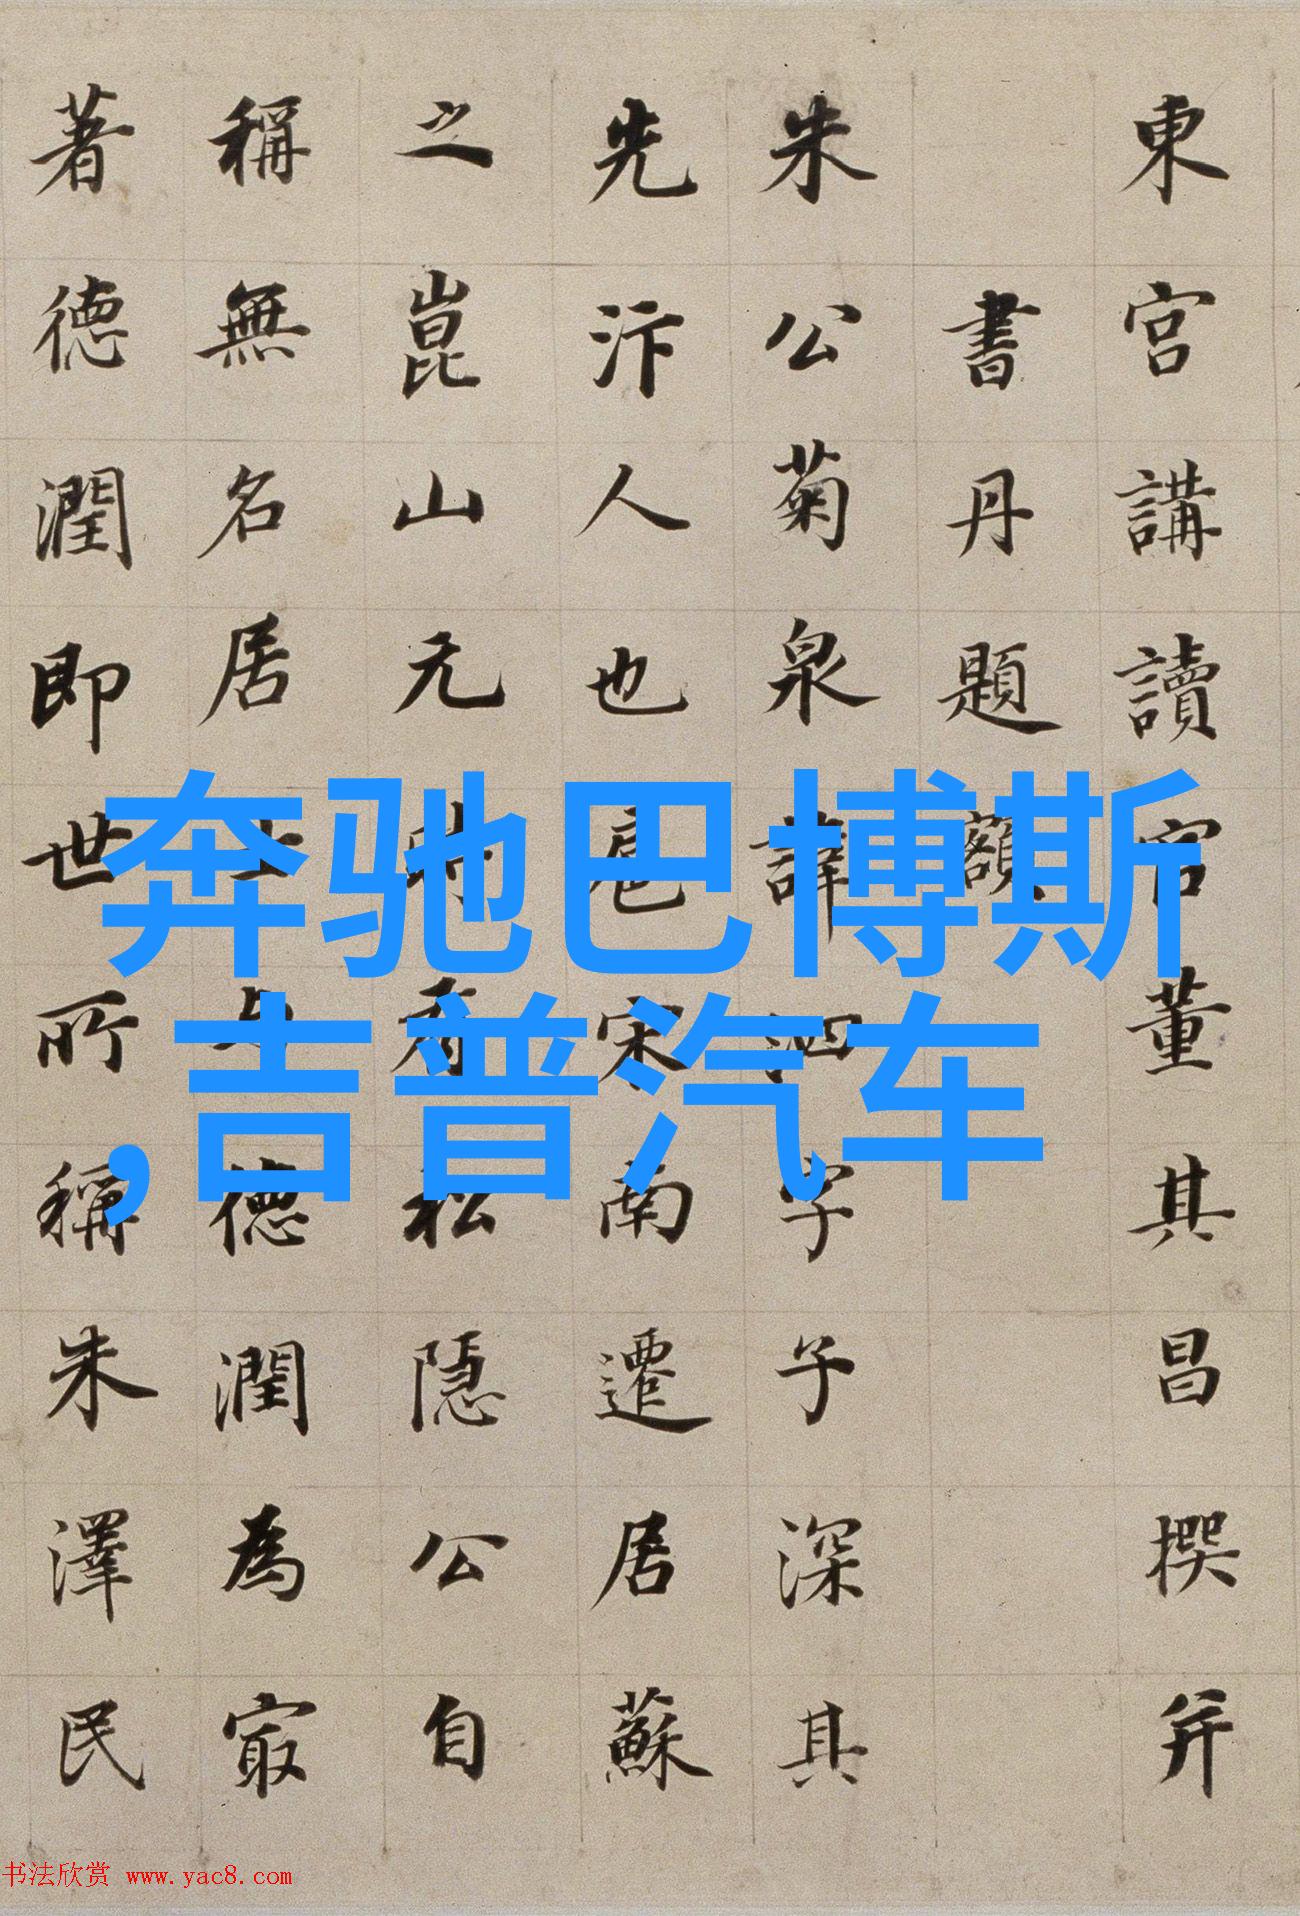 東宮講讀官董其昌撰并
書丹題額
朱公菊泉諱泗字子深其
先汴人也扈宋南遷居蘇
之崑山元時有松隱公自
稱無名居士与德潤為㝡
著德潤即世所稱朱澤民
奔驰巴博斯
,吉普汽车
书法欣赏 www.yac8.com